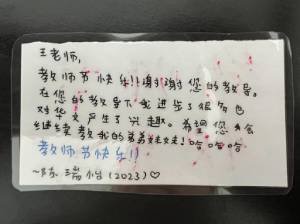 王老师,
教师节快乐!!谢谢谢您的教导。
在您的教导下我进步了很多也
对华文产生了兴趣。希望您会
继续教我的弟弟妹妹!哈哈哈
教师节快乐!!
~陈 瑞怡(2023)♡